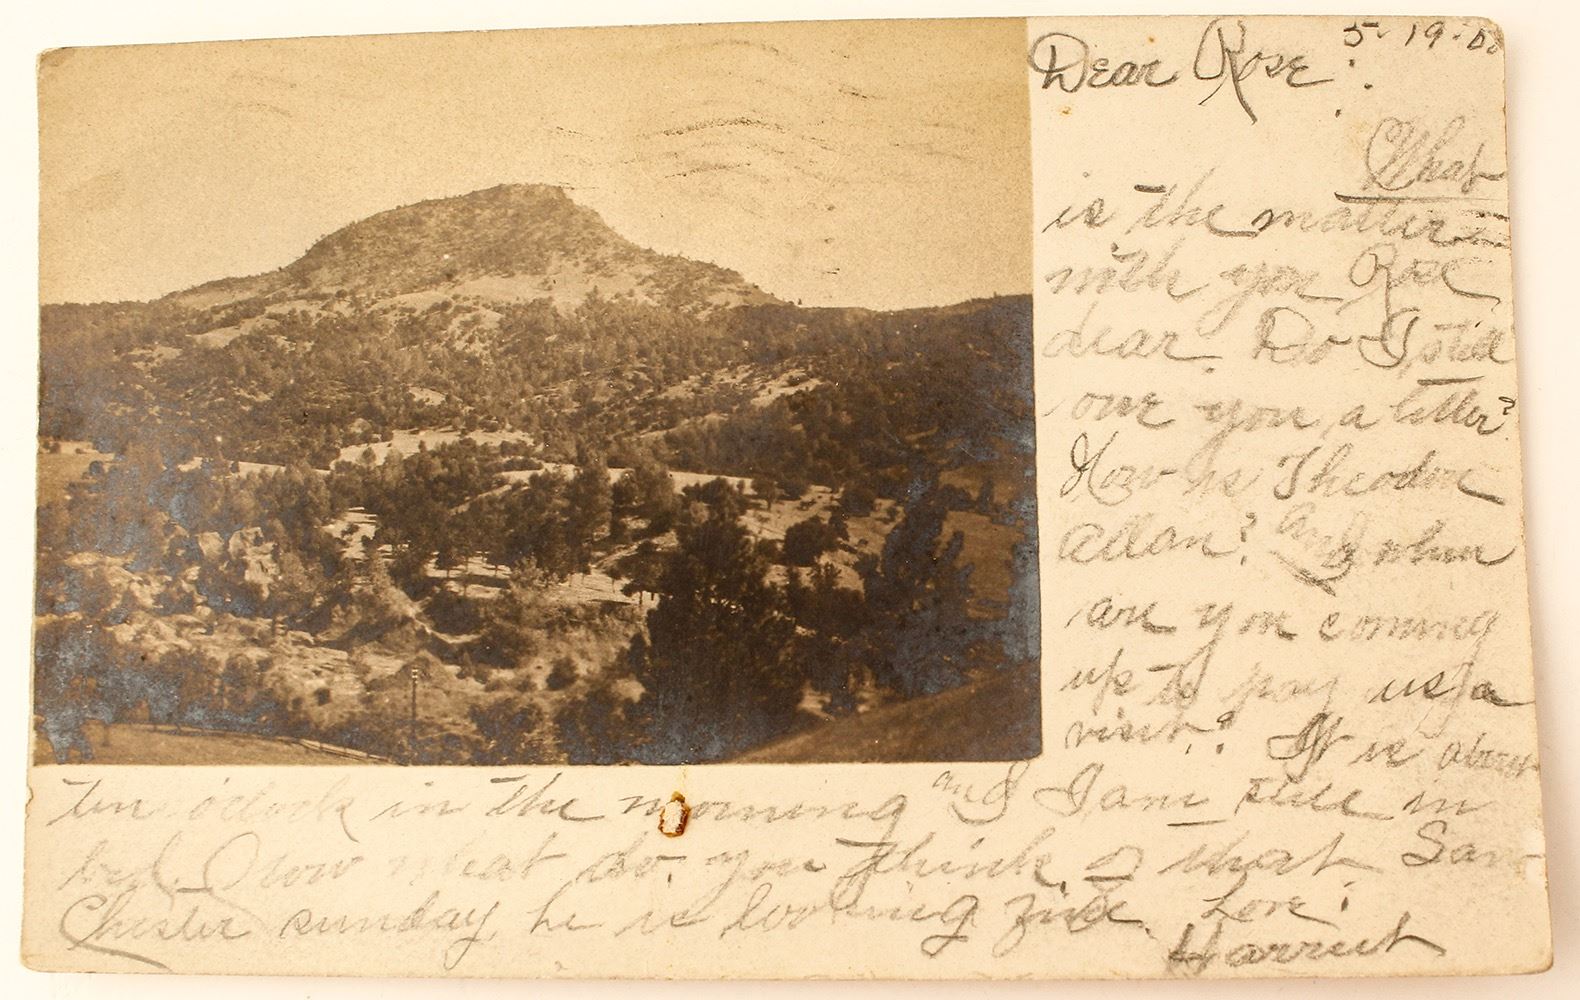 5-19-0
Dear Rose:
What
is the matter
with you Rose
dear. Do I still
owe you a letter?
How is Theodore
Allan? And when
are you coming
up to pay us a
visit? It is about
ten o'clock in the morning and I am still in
bed. Now what do you think of that. Saw
Chester sunday, he is looking fine. Love.
Harriet